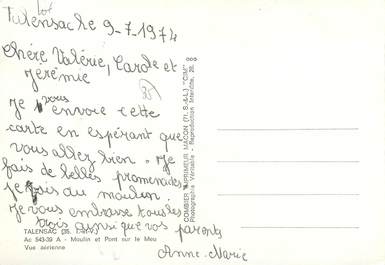 Talensac le 9-7-1974
Chère Valérie, Carole et
Jérémie
Je vous envoie cette
carte en espérant que
vous allez bien. Je
fais de belles promenades
je vois du moulin.
Je vous embrasse tous les
trois ainsi que vos parents
Anne-Marie
TALENSAC (35. I.-et-V.)
Ac 543-39 A - Moulin et Pont sur le Meu
Vue aérienne
COMBIER IMPRIMEUR MACON (71. S.-&-L.) "CIM"
Photographie Véritable - Reproduction Interdite.